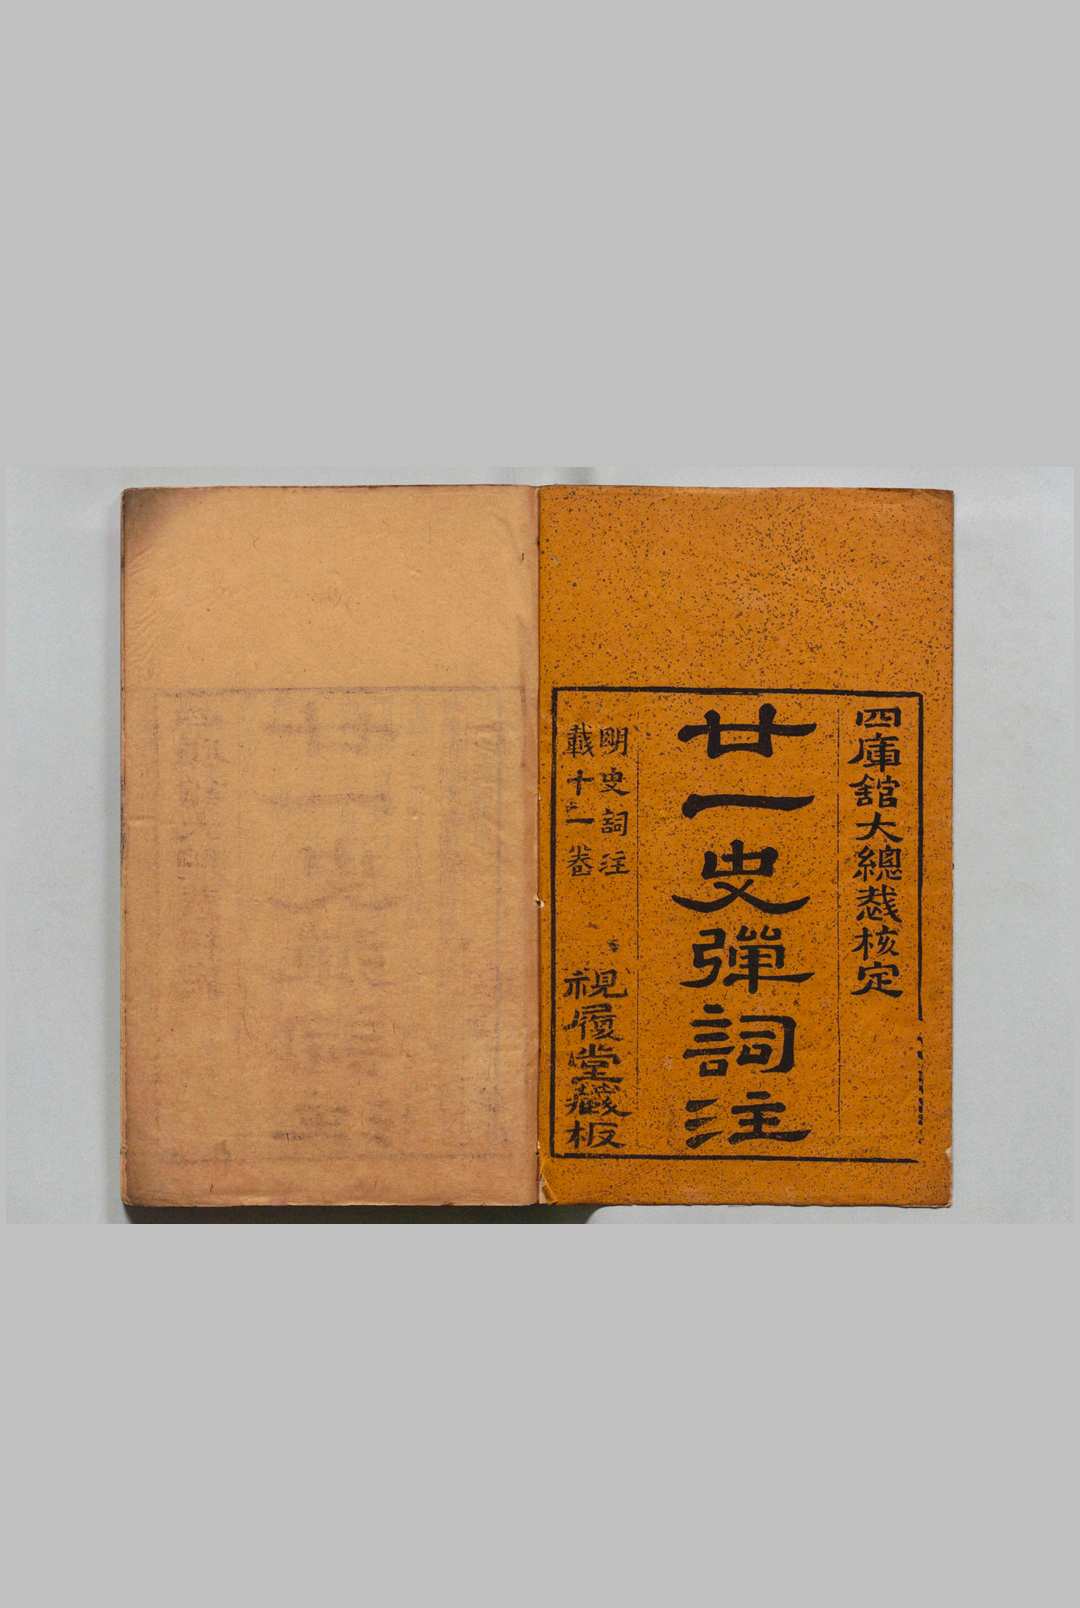 四庫館大總裁核定
廿一史彈詞注
明史詞注
載十一卷
視履堂藏板